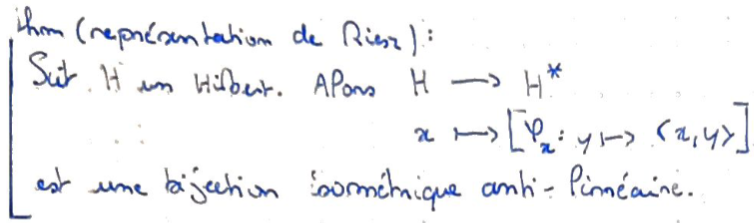 thm (représentation de Riesz):
Soit H un Hilbert. Alors H → H*
x ↦ [φ_x : y ↦ ⟨x, y⟩]
est une bijection isométrique anti-linéaire.